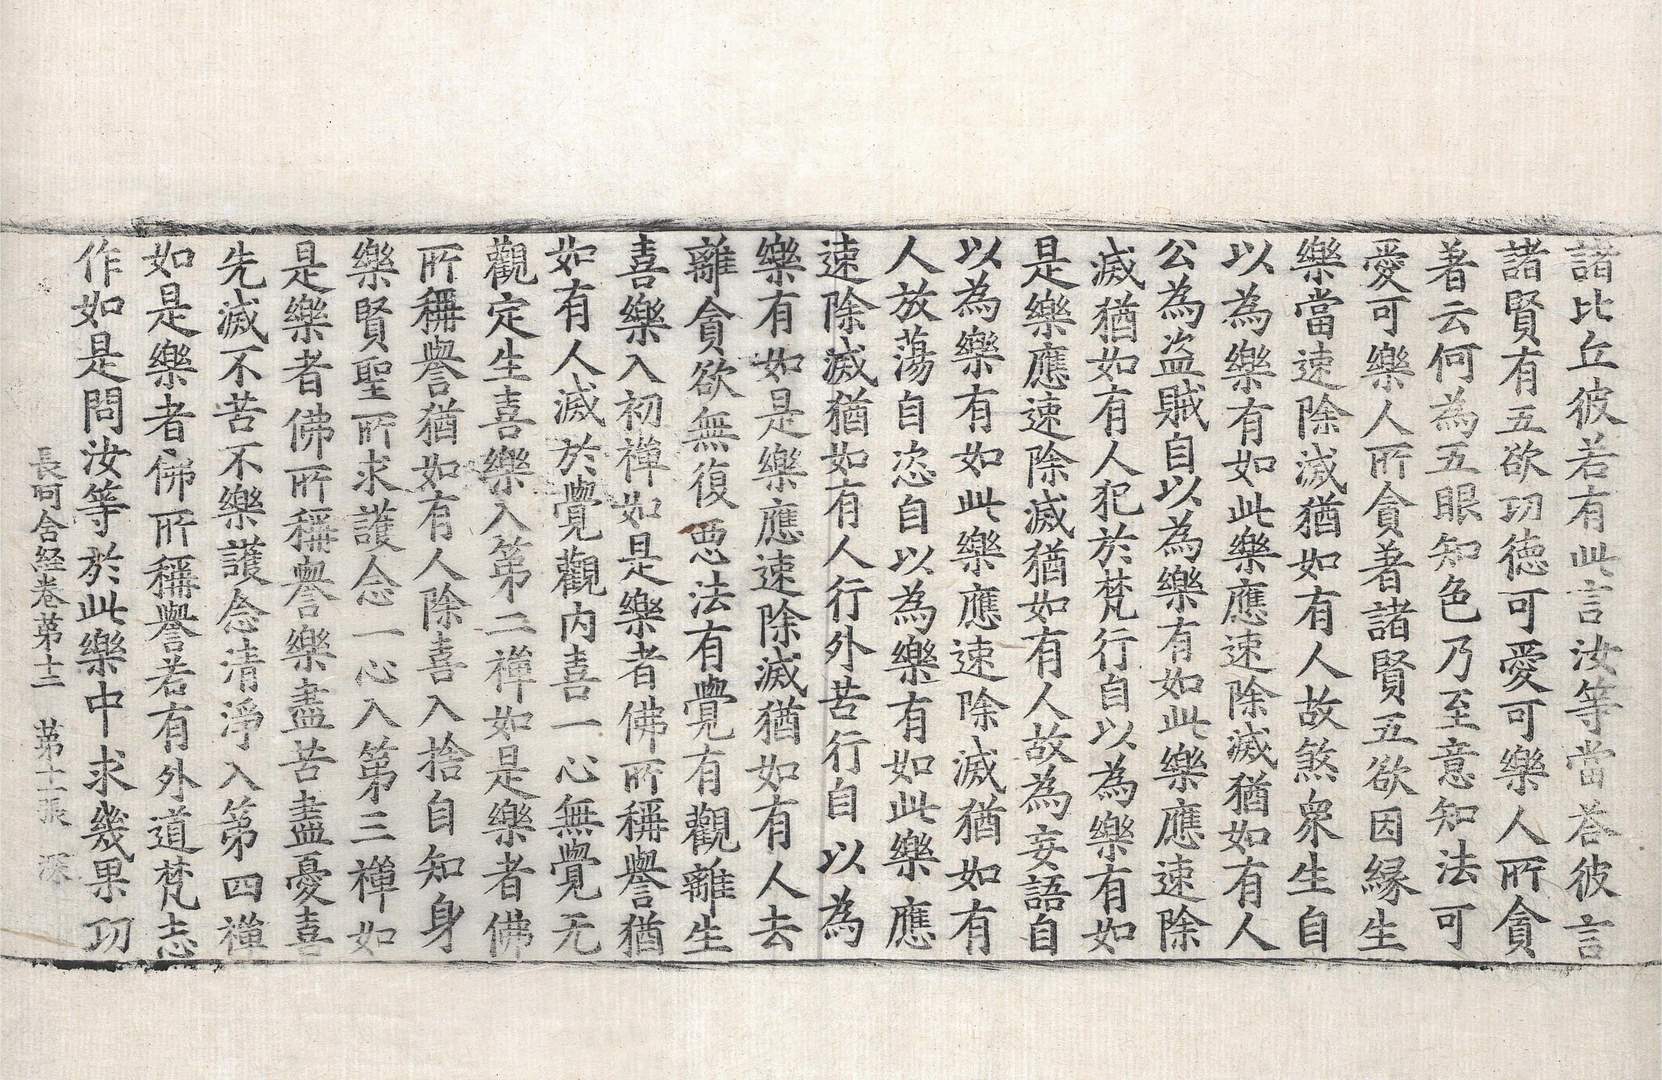 諸比丘彼若有此言汝等當荅彼言
諸賢有五欲功德可愛可樂人所貪
著云何為五眼知色乃至意知法可
愛可樂人所貪著諸賢五欲因縁生
樂當速除滅猶如有人故煞衆生自
以為樂有如此樂應速除滅猶如有人
公為盗賊自以為樂有如此樂應速除
滅猶如有人犯於梵行自以為樂有如
是樂應速除滅猶如有人故為妄語自
以為樂有如此樂應速除滅猶如有
人放蕩自恣自以為樂有如此樂應
速除滅猶如有人行外苦行自以為
樂有如是樂應速除滅猶如有人去
離貪欲無復惡法有覺有觀離生
喜樂入初禪如是樂者佛所稱譽猶
如有人滅於覺觀內喜一心無覺无
觀定生喜樂入第二禪如是樂者佛
所稱譽猶如有人除喜入捨自知身
樂賢聖所求護念一心入第三禪如
是樂者佛所稱譽樂盡苦盡憂喜
先滅不苦不樂護念清淨入第四禪
如是樂者佛所稱譽若有外道梵志
作如是問汝等於此樂中求幾果功
長阿含経卷第十二 第十一張 深